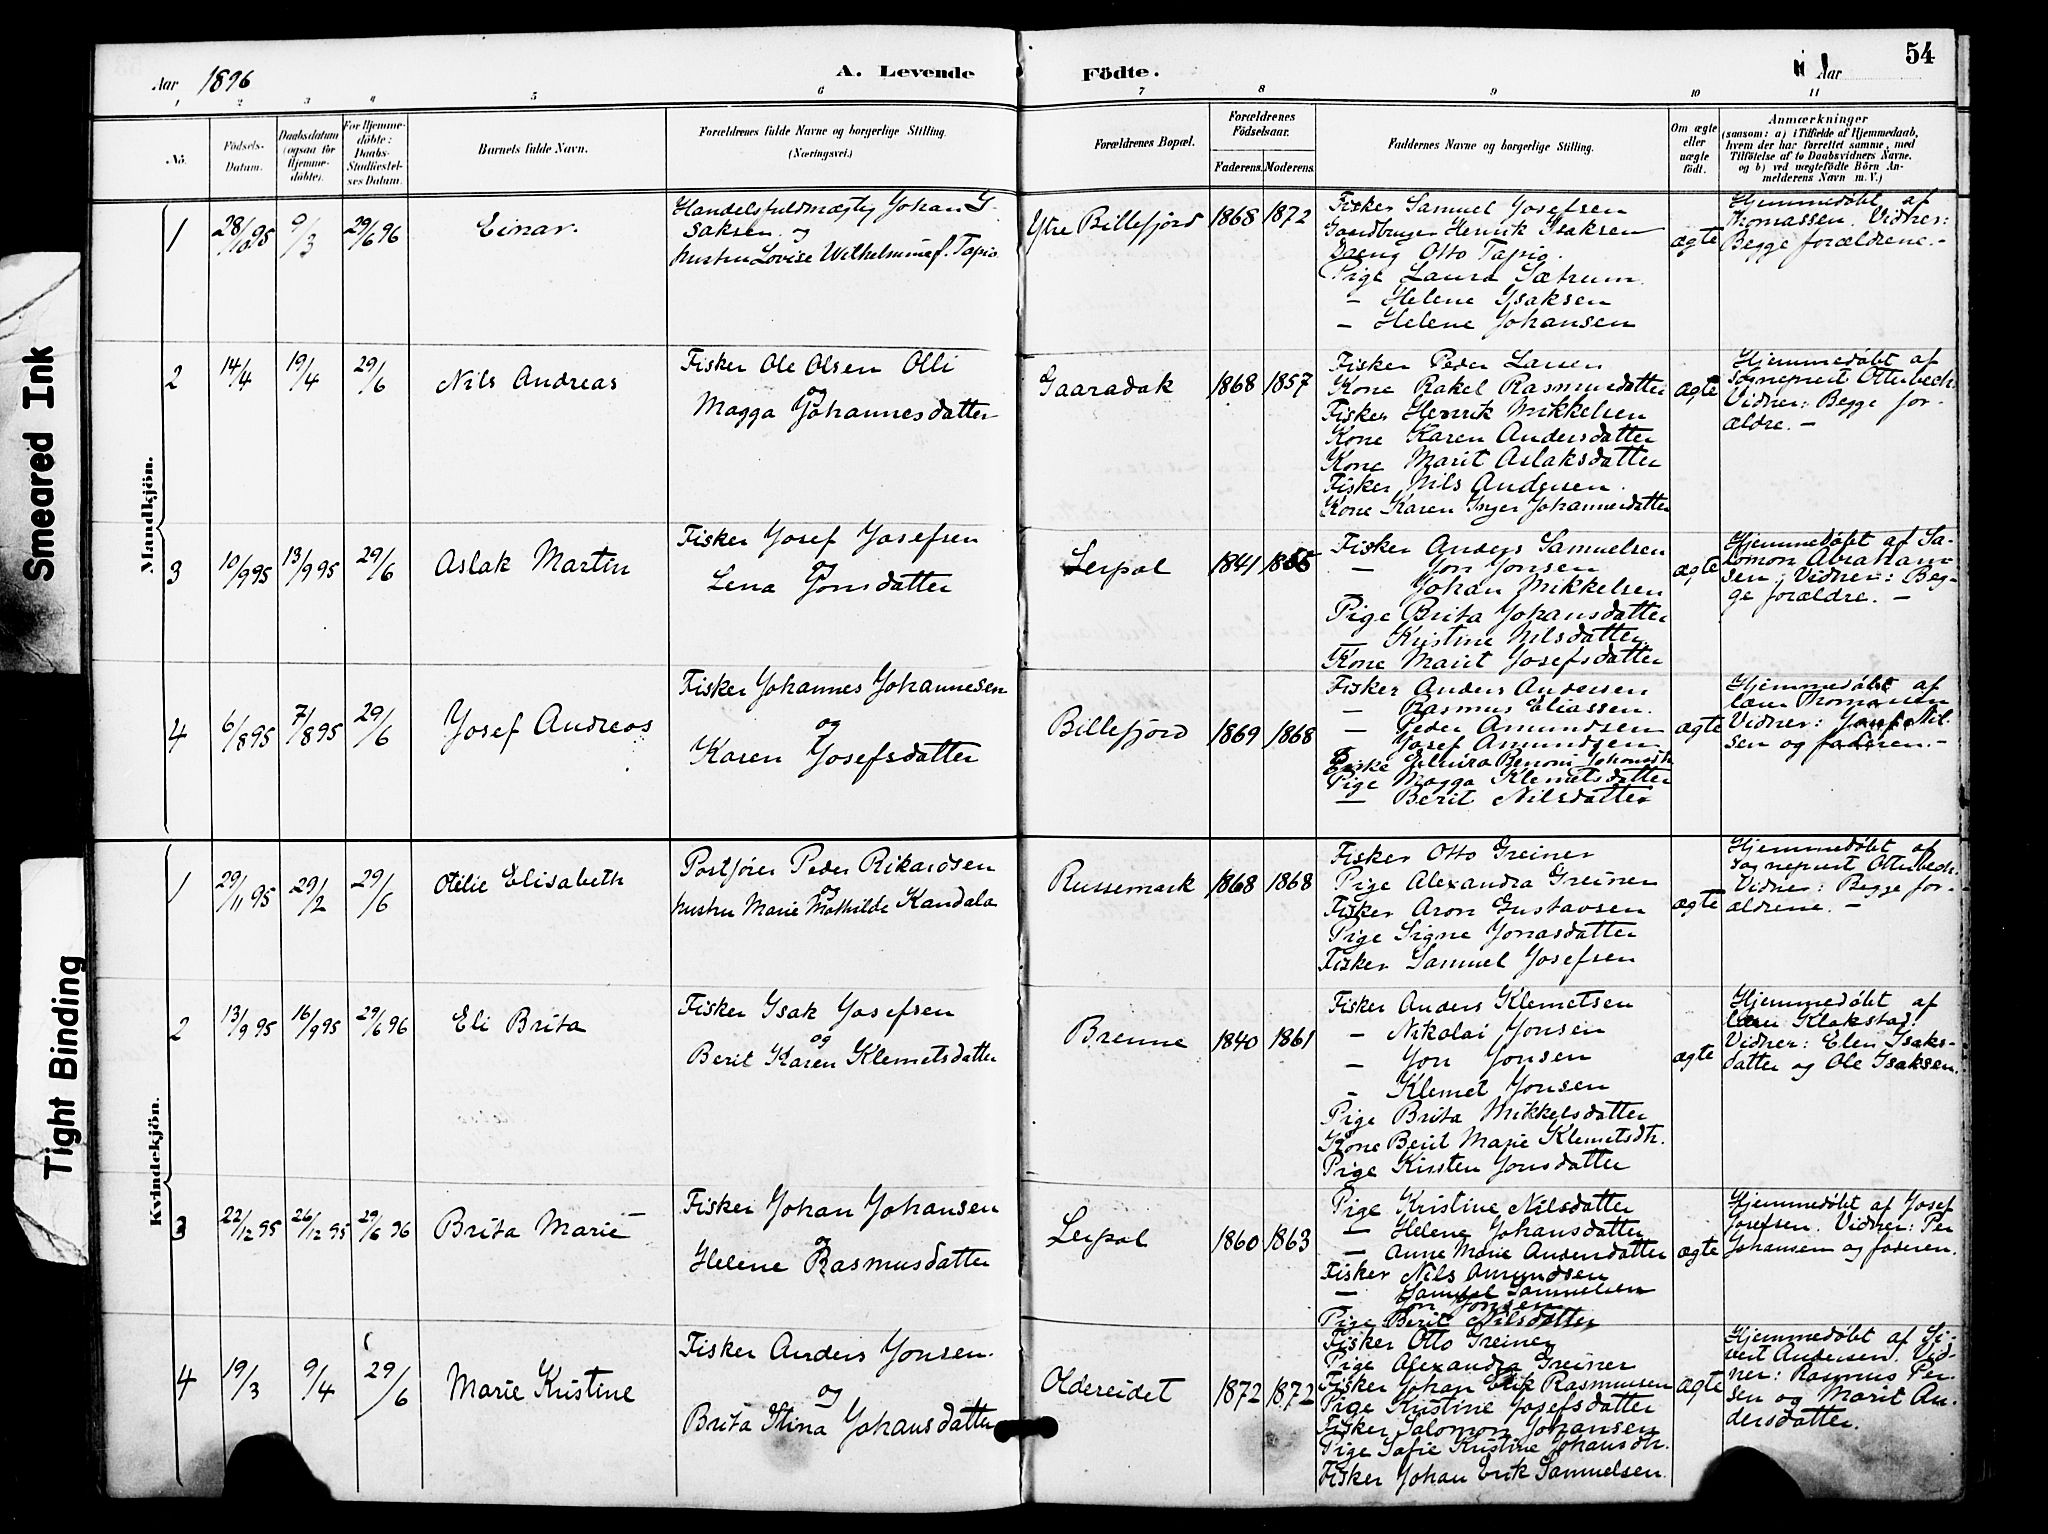 54
Aar 1896
A. Levende Födte.
Aar
1 2 3 4 5 6 7 8 9 10 11
No.
Födsels-Datum.
Daabsdatum (ogsaa for Hjemmedöbte).
For Hjemmedöbte: Daabs-Stadfæstelses Datum.
Barnets fulde Navn.
Forældrenes fulde Navne og borgerlige Stilling.
(Næringsvei.)
Forældrenes Bopæl.
Forældrenes Födselsaar.
Faderens. Moderens.
Faddernes Navne og borgerlige Stilling.
Om ægte eller uægte födt.
Anmærkninger
(saasom: a) i Tilfælde af Hjemmedaab,
hvem der har forrettet samme, med
Tilföielse af to Daabsvidners Navne,
og b) ved uægtefödte Börn Anmelderens Navn m. V.)
Smeared Ink
Tight Binding
Mandkjön.
1 28/10 95 9/3 29/6 96 Einar.
Handelsfuldmægtig Johan Isaksen og
hustru Lovise Wilhelmine f. Tapio
Ytre Billefjord 1868 1872
Fisker Samuel Josefsen
Gaardbruger Henrik Isaksen
Dreng Otto Tapio.
Pige Laura Sætrum.
— Helene Isaksen
— Helene Johansen
ægte
Hjemmedøbt af
Thomassen. Vidner:
Begge forældrene.-
2 14/4 19/4 29/6 Nils Andreas
Fisker Ole Olsen Olli
og
Magga Johannesdatter
Gaaradak 1868 1857
Fisker Peder Larsen
Kone Rakel Rasmusdatter
Fisker Henrik Mikkelsen
Kone Karen Andersdatter
Kone Marit Aslaksdatter
Fisker Nils Andersen.
Kone Karen Inger Johannesdatter
ægte
Hjemmedøbt af
sogneprest Otterbech.
Vidner: Begge for-
ældre. —
3 10/9 95 13/9 95 29/6 Aslak Martin
Fisker Josef Josefsen
og
Lena Jonsdatter
Leipol 1841 1855
Fisker Anders Samuelsen
— Jon Jonsen
Johan Mikkelsen
Pige Brita Johansdatter
— Kristine Nilsdatter
Kone Marit Josefsdatter
ægte
Hjemmedøbt af Sa-
lomon Abraham-
sen. Vidner: Beg-
ge forældre. —
4 6/8 95 7/8 95 29/6 Josef Andreas
Fisker Johannes Johannesen
og
Karen Josefsdatter
Billefjord 1869 1868
Fisker Anders Andersen
— Rasmus Eliassen.
— Peder Amundsen
Josef Amundsen
Benoni
Pige Magga Klemetsdatter
— Berit Nilsdatter
ægte
Hjemmedøbt af
lærer Thomassen
Vidner: Josef Nil-
sen og faderen.-
Kvindekjön.
1 29/11 95 29/2 29/6 Otilie Elisabeth
Postfører Peder Rikardsen
og
hustru Marie Mathilde Kandala
Russemark 1868 1868
Fisker Otto Greiner
Pige Alexandra Greiner
Fisker Aron Gustavsen
Pige Signe Jonasdatter
Fisker Samuel Josefsen
ægte
Hjemmedøbt af
sogneprest Otterbech.
Vidner: Begge for-
ældrene. —
2 13/9 95 16/9 95 29/6 96 Eli Brita
Fisker Isak Josefsen
og
Berit Karen Klemetsdatter
Brenne 1840 1861
Fisker Anders Klemetsen
— Nikolai Jonsen
— Jon Jonsen
— Klemet Jonsen
Pige Brita Mikkelsdatter
Kone Berit Marie Klemetsdtr.
Pige Kirsten Jonsdatter
ægte
Hjemmedøbt af
lærer Klokstad.
Vidner: Elen Isaks-
datter og Ole Isaksen.
3 22/12 95 26/12 95 29/6 96 Brita Marie
Fisker Johan Johansen
og
Helene Rasmusdatter
Leipol 1860 1863
Pige Kristine Nilsdatter
— Helene Johansdatter
— Anne Marie Andersdatter
Fisker Nils Amundsen
— Samuel Samuelsen
Jon Jonsen
Pige Berit Nilsdatter
ægte
Hjemmedøbt af Josef
Josefsen. Vidner: Per
Johansen og faderen.
4 19/3 9/4 29/6 Marie Kristine
Fisker Anders Jonsen.
og
Brita Stina Johansdatter
Oldereidet 1872 1872
Fisker Otto Greiner
Pige Alexandra Greiner
Fisker Johan Erik Rasmussen
Pige Kristine Josefsdatter
Fisker Salomon Johansen
Pige Sofie Kristine Johansdtr.
Fisker Johan Erik Samuelsen.
ægte
Hjemmedøbt af Si-
vert Andersen. Vid-
ner: Rasmus Per-
sen og Marit An-
dersdatter.